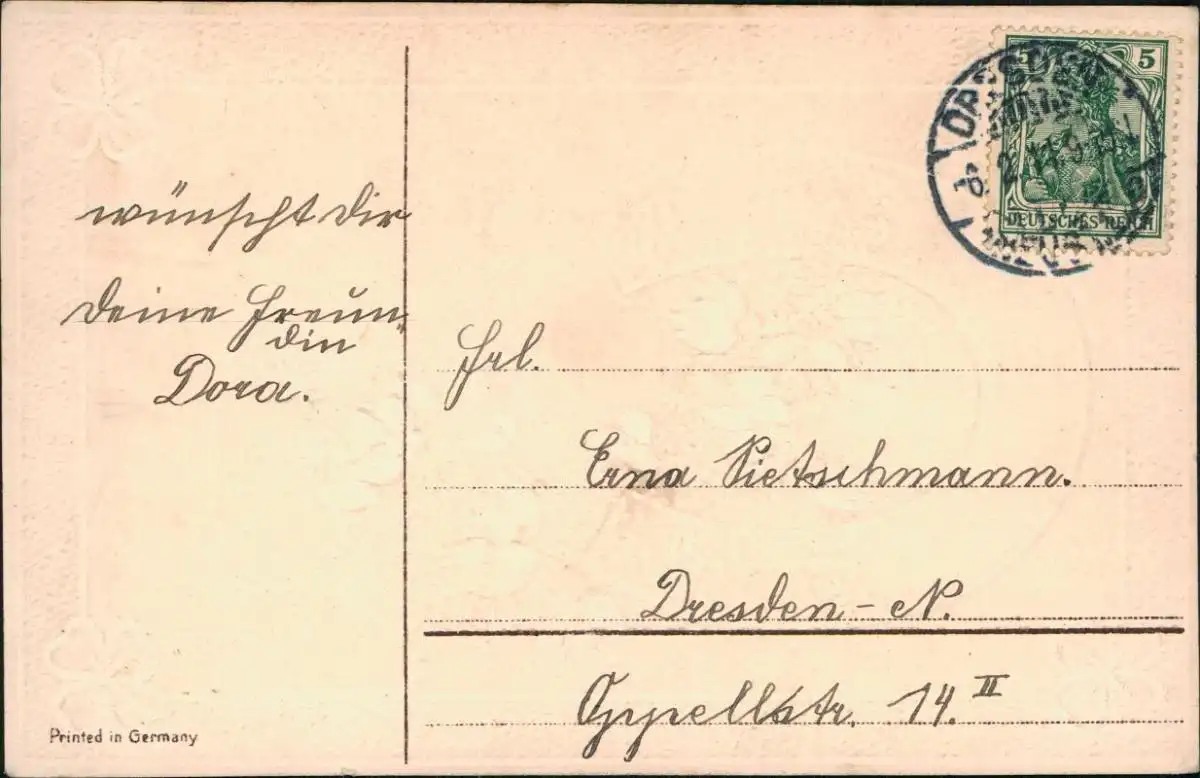 wünscht dir
Deine Freun-
din
Dora.
Printed in Germany
5 5
DEUTSCHES REICH
DRESDEN
Frl.
Erna Pietschmann.
Dresden-N.
Oppellstr. 14. II